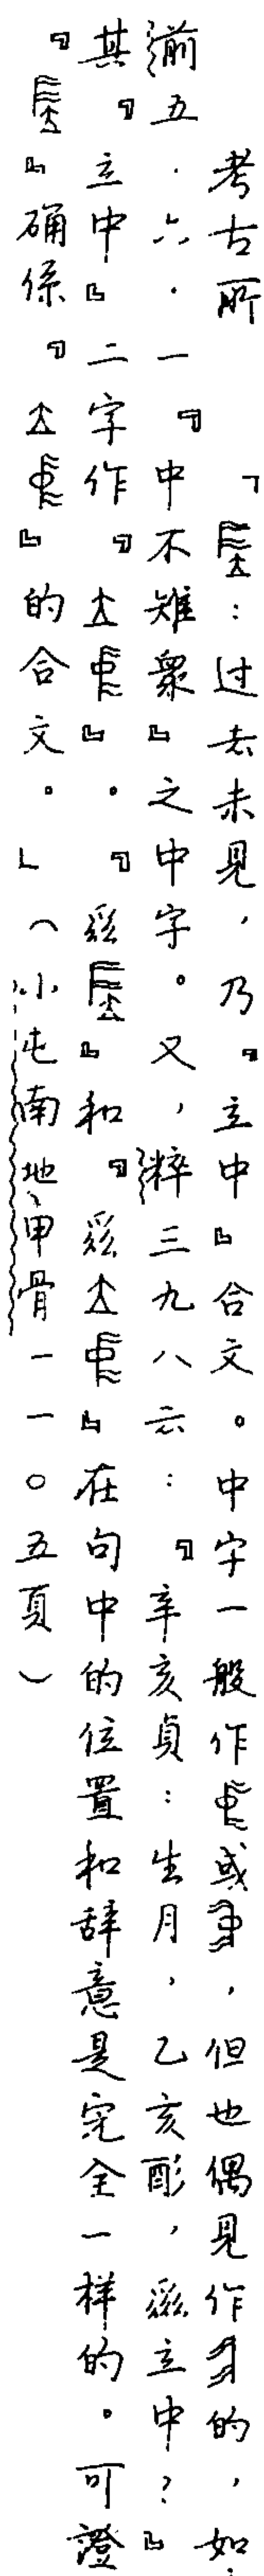 考古所　「：过去未見，乃『立中』合文。中字一般作或，但也偶見作的，如：
前五·六·一『中不雉衆』之中字。又，粹三九八云：『辛亥貞：生月，乙亥酌，立中？』
其『立中』二字作『』。『』和『』在句中的位置和辞意是完全一样的。可證
『』确係『』的合文。」（小屯南地甲骨一一〇五頁）